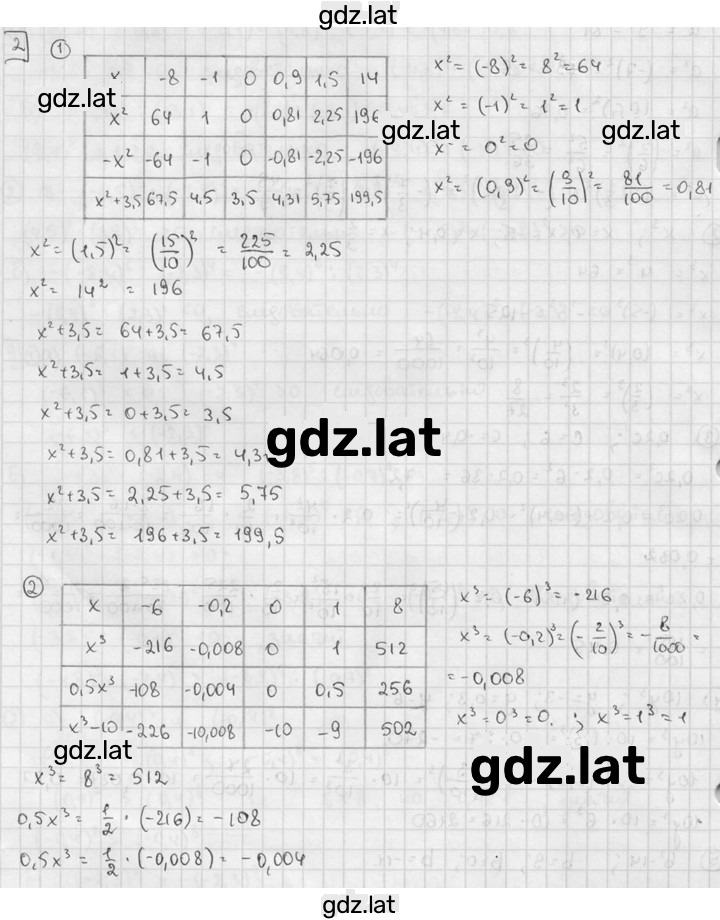 gdz.lat
2 ①
x -8 -1 0 0,9 1,5 14
x² 64 1 0 0,81 2,25 196
-x² -64 -1 0 -0,81 -2,25 -196
x²+3,5 67,5 4,5 3,5 4,31 5,75 199,5
x² = (-8)² = 8² = 64
x² = (-1)² = 1² = 1
gdz.lat
gdz.lat gdz.lat
x² = 0² = 0
x² = (0,9)² = (9/10)² = 81/100 = 0,81
x² = (1,5)² = (15/10)² = 225/100 = 2,25
x² = 14² = 196
x²+3,5 = 64+3,5 = 67,5
x²+3,5 = 1+3,5 = 4,5
x²+3,5 = 0+3,5 = 3,5
gdz.lat
x²+3,5 = 0,81+3,5 = 4,3
x²+3,5 = 2,25+3,5 = 5,75
x²+3,5 = 196+3,5 = 199,5
②
x -6 -0,2 0 1 8
x³ -216 -0,008 0 1 512
0,5x³ -108 -0,004 0 0,5 256
x³-10 -226 -10,008 -10 -9 502
x³ = (-6)³ = -216
x³ = (-0,2)³ = (-2/10)³ = -8/1000 =
= -0,008
x³ = 0³ = 0. ; x³ = 1³ = 1
gdz.lat
gdz.lat
x³ = 8³ = 512
0,5x³ = 1/2 · (-216) = -108
0,5x³ = 1/2 · (-0,008) = -0,004
gdz.lat